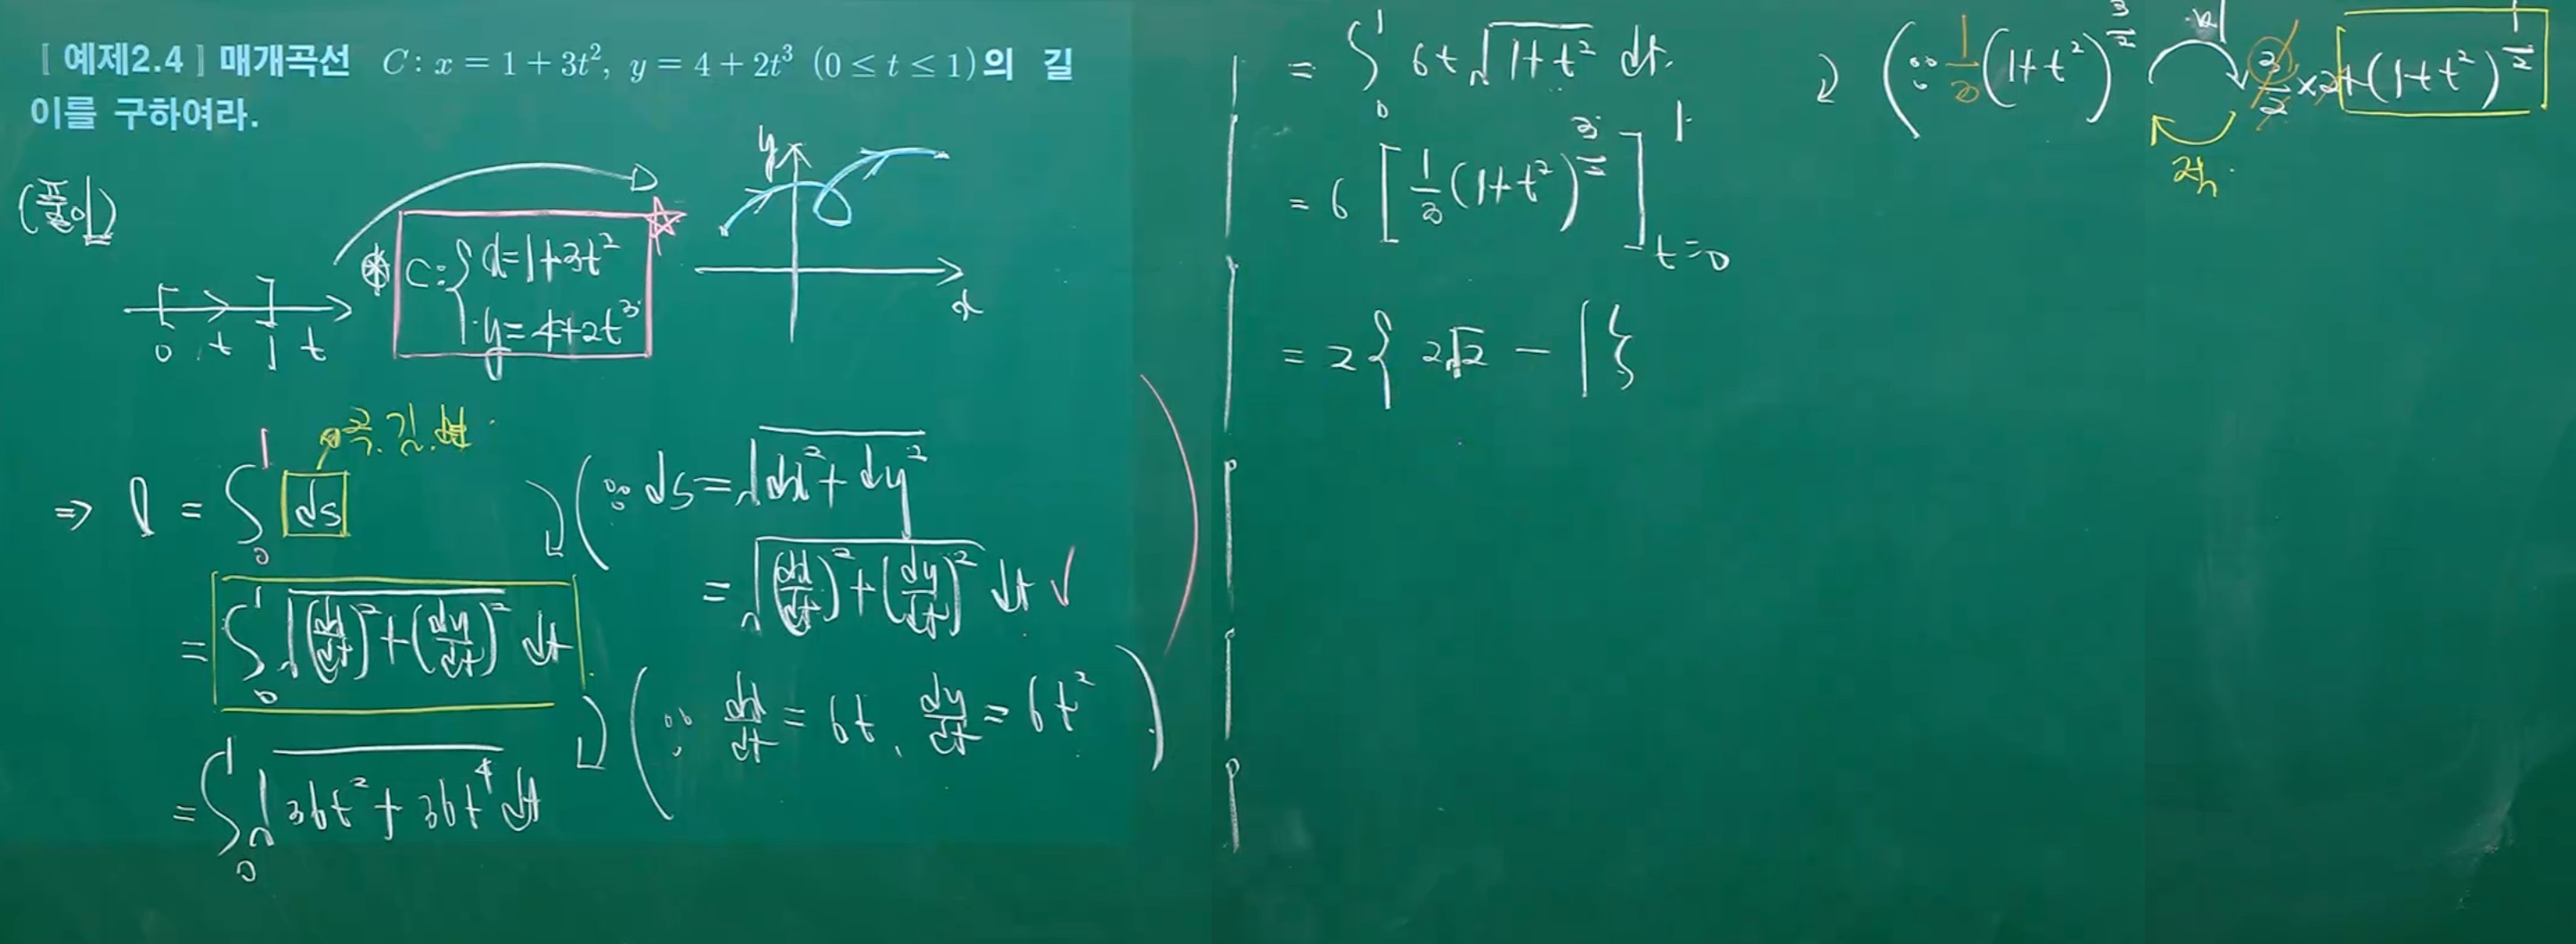 [ 예제2.4 ] 매개곡선 C : x = 1 + 3t², y = 4 + 2t³ (0 ≤ t ≤ 1)의 길
이를 구하여라.
(풀이)
0 t 1 t
⊛ C: { x = 1+3t²
y = 4+2t³
y
x
곡.길.
⇒ l = ∫₀¹ ds
(∵ ds = √(dx² + dy²)
= √((dx/dt)² + (dy/dt)²) dt ✓ )
= ∫₀¹ √((dx/dt)² + (dy/dt)²) dt
(∵ dx/dt = 6t, dy/dt = 6t²)
= ∫₀¹ √(36t² + 36t⁴) dt
= ∫₀¹ 6t √(1+t²) dt.
(∵ 1/3 (1+t²)^(3/2) 미 3/2 × 2t(1+t²)^(1/2)
적.
= 6 [ 1/3 (1+t²)^(3/2) ]¹ t=0
= 2 { 2√2 − 1 }